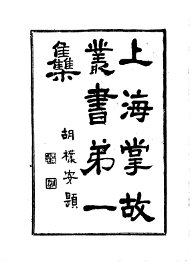 上海掌故
叢書弟一
集
胡樸安題